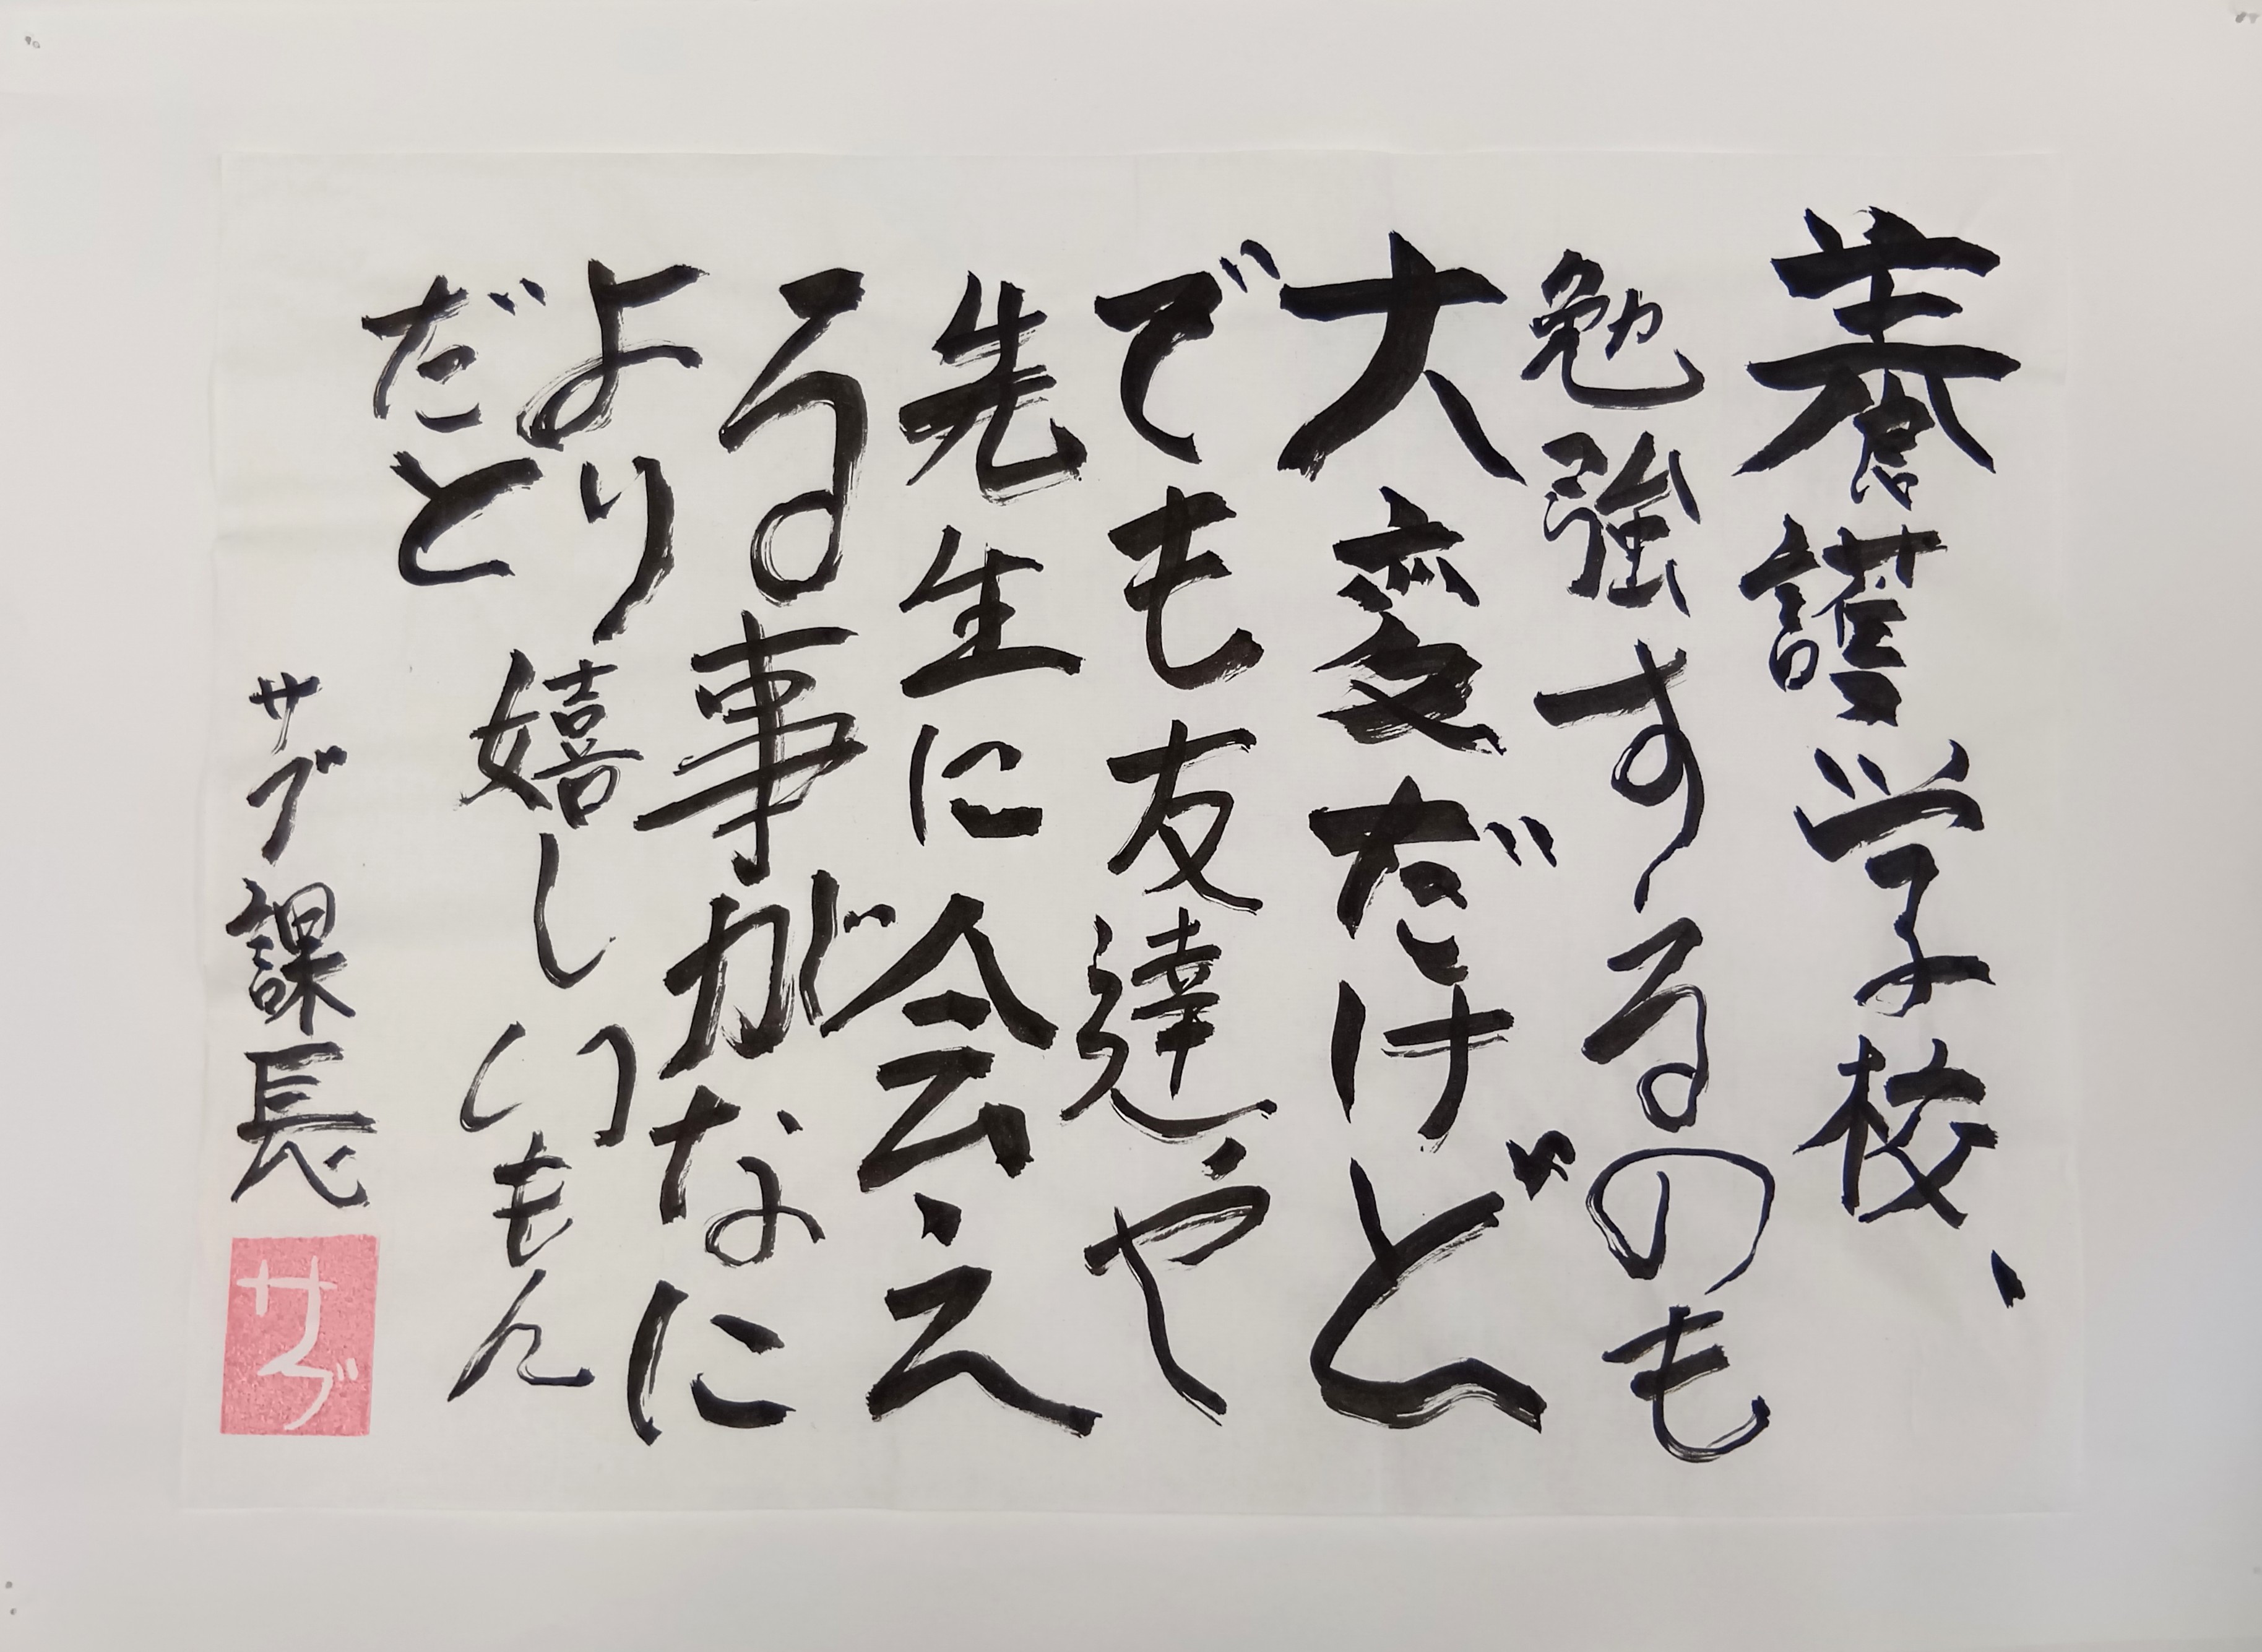 養護学校、
勉強するのも
大変だけど
でも友達や
先生に会え
る事がなに
より嬉しいもん
だと
サブ課長
サブ